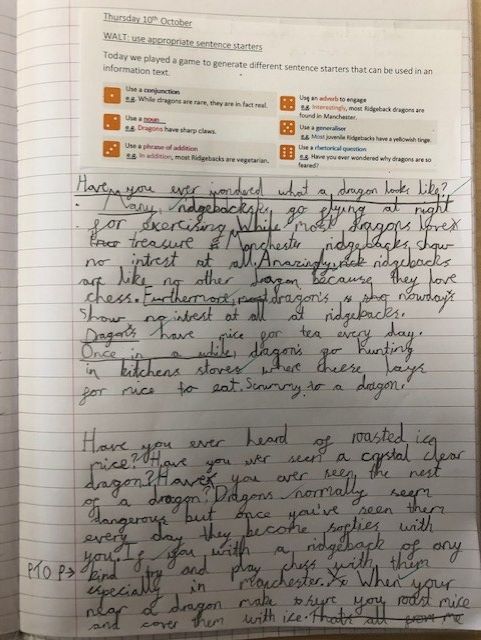 Thursday 10th October
WALT: use appropriate sentence starters
Today we played a game to generate different sentence starters that can be used in an
information text.
Use a conjunction
e.g. While dragons are rare, they are in fact real.
Use a noun
e.g. Dragons have sharp claws.
Use a phrase of addition
e.g. In addition, most Ridgebacks are vegetarian.
Use an adverb to engage
e.g. Interestingly, most Ridgeback dragons are
found in Manchester.
Use a generaliser
e.g. Most juvenile Ridgebacks have a yellowish tinge.
Use a rhetorical question
e.g. Have you ever wondered why dragons are so
feared?
Have you ever wondered what a dragon looks like?
Many, ridgebacks go flying at night
for exercising. While most dragons love
treasure Manchester ridgebacks show
no intrest at all. Amazingly, ridgebacks
are like no other dragon because they love
chess. Furthermore, most dragon's nowdays
show no intrest at all at ridgebacks.
Dragons have mice for tea every day.
Once in a while, dragons go hunting
in kitchens stoves where cheese lays
for mice to eat. Scrummy to a dragon.
Have you ever heard of roasted icy
mice? Have you ever seen a crystal clear
dragon? Have you ever seen the nest
of a dragon? Dragons normally seem
dangerous but once you've seen them
every day they become softies with
you. If you with a ridgeback of any
PTO kind try and play chess with them
especially in Manchester. When your
near a dragon make sure you roast mice
and cover them with ice. That's all